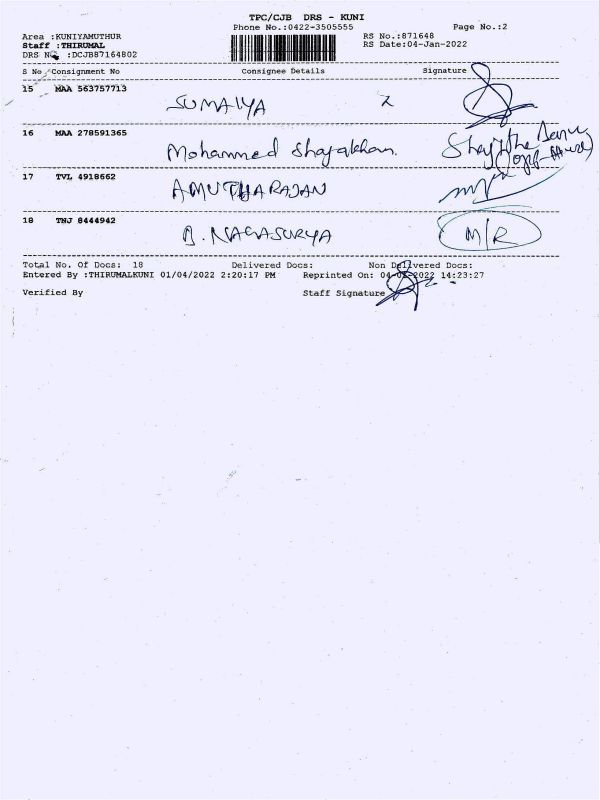 TPC/CJB DRS - KUNI
Phone No.:0422-3505555 Page No.:2
Area :KUNIYAMUTHUR RS No.:871648
Staff :THIRUMAL RS Date:04-Jan-2022
DRS No :DCJB87164802
S No Consignment No Consignee Details Signature
15 MAA 563757713 SUMAIYA 2
16 MAA 278591365 Mohammed Shajakhan.
17 TVL 4918662 AMUTHARAJAN
18 TNJ 8444942 B. NAGASURYA M/R
Total No. Of Docs: 18 Delivered Docs: Non Delivered Docs:
Entered By :THIRUMALKUNI 01/04/2022 2:20:17 PM Reprinted On: 04-01-2022 14:23:27
Verified By Staff Signature